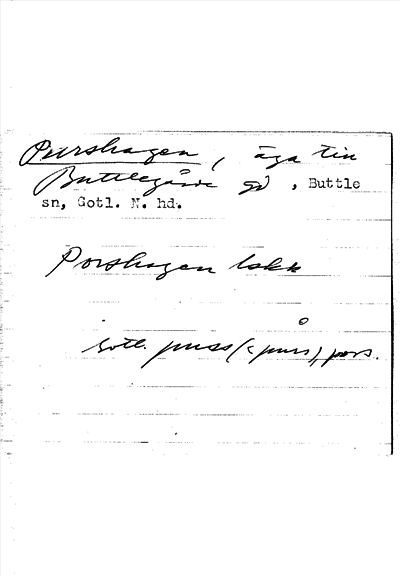 Purshagen, äga till
Buttlegårde gd, Buttle
sn, Gotl. N. hd.
Porshagen lskk
Gotl. puss (< purs), pors.